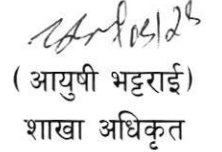 ( आयुषी भट्टराई)
शाखा अधिकृत